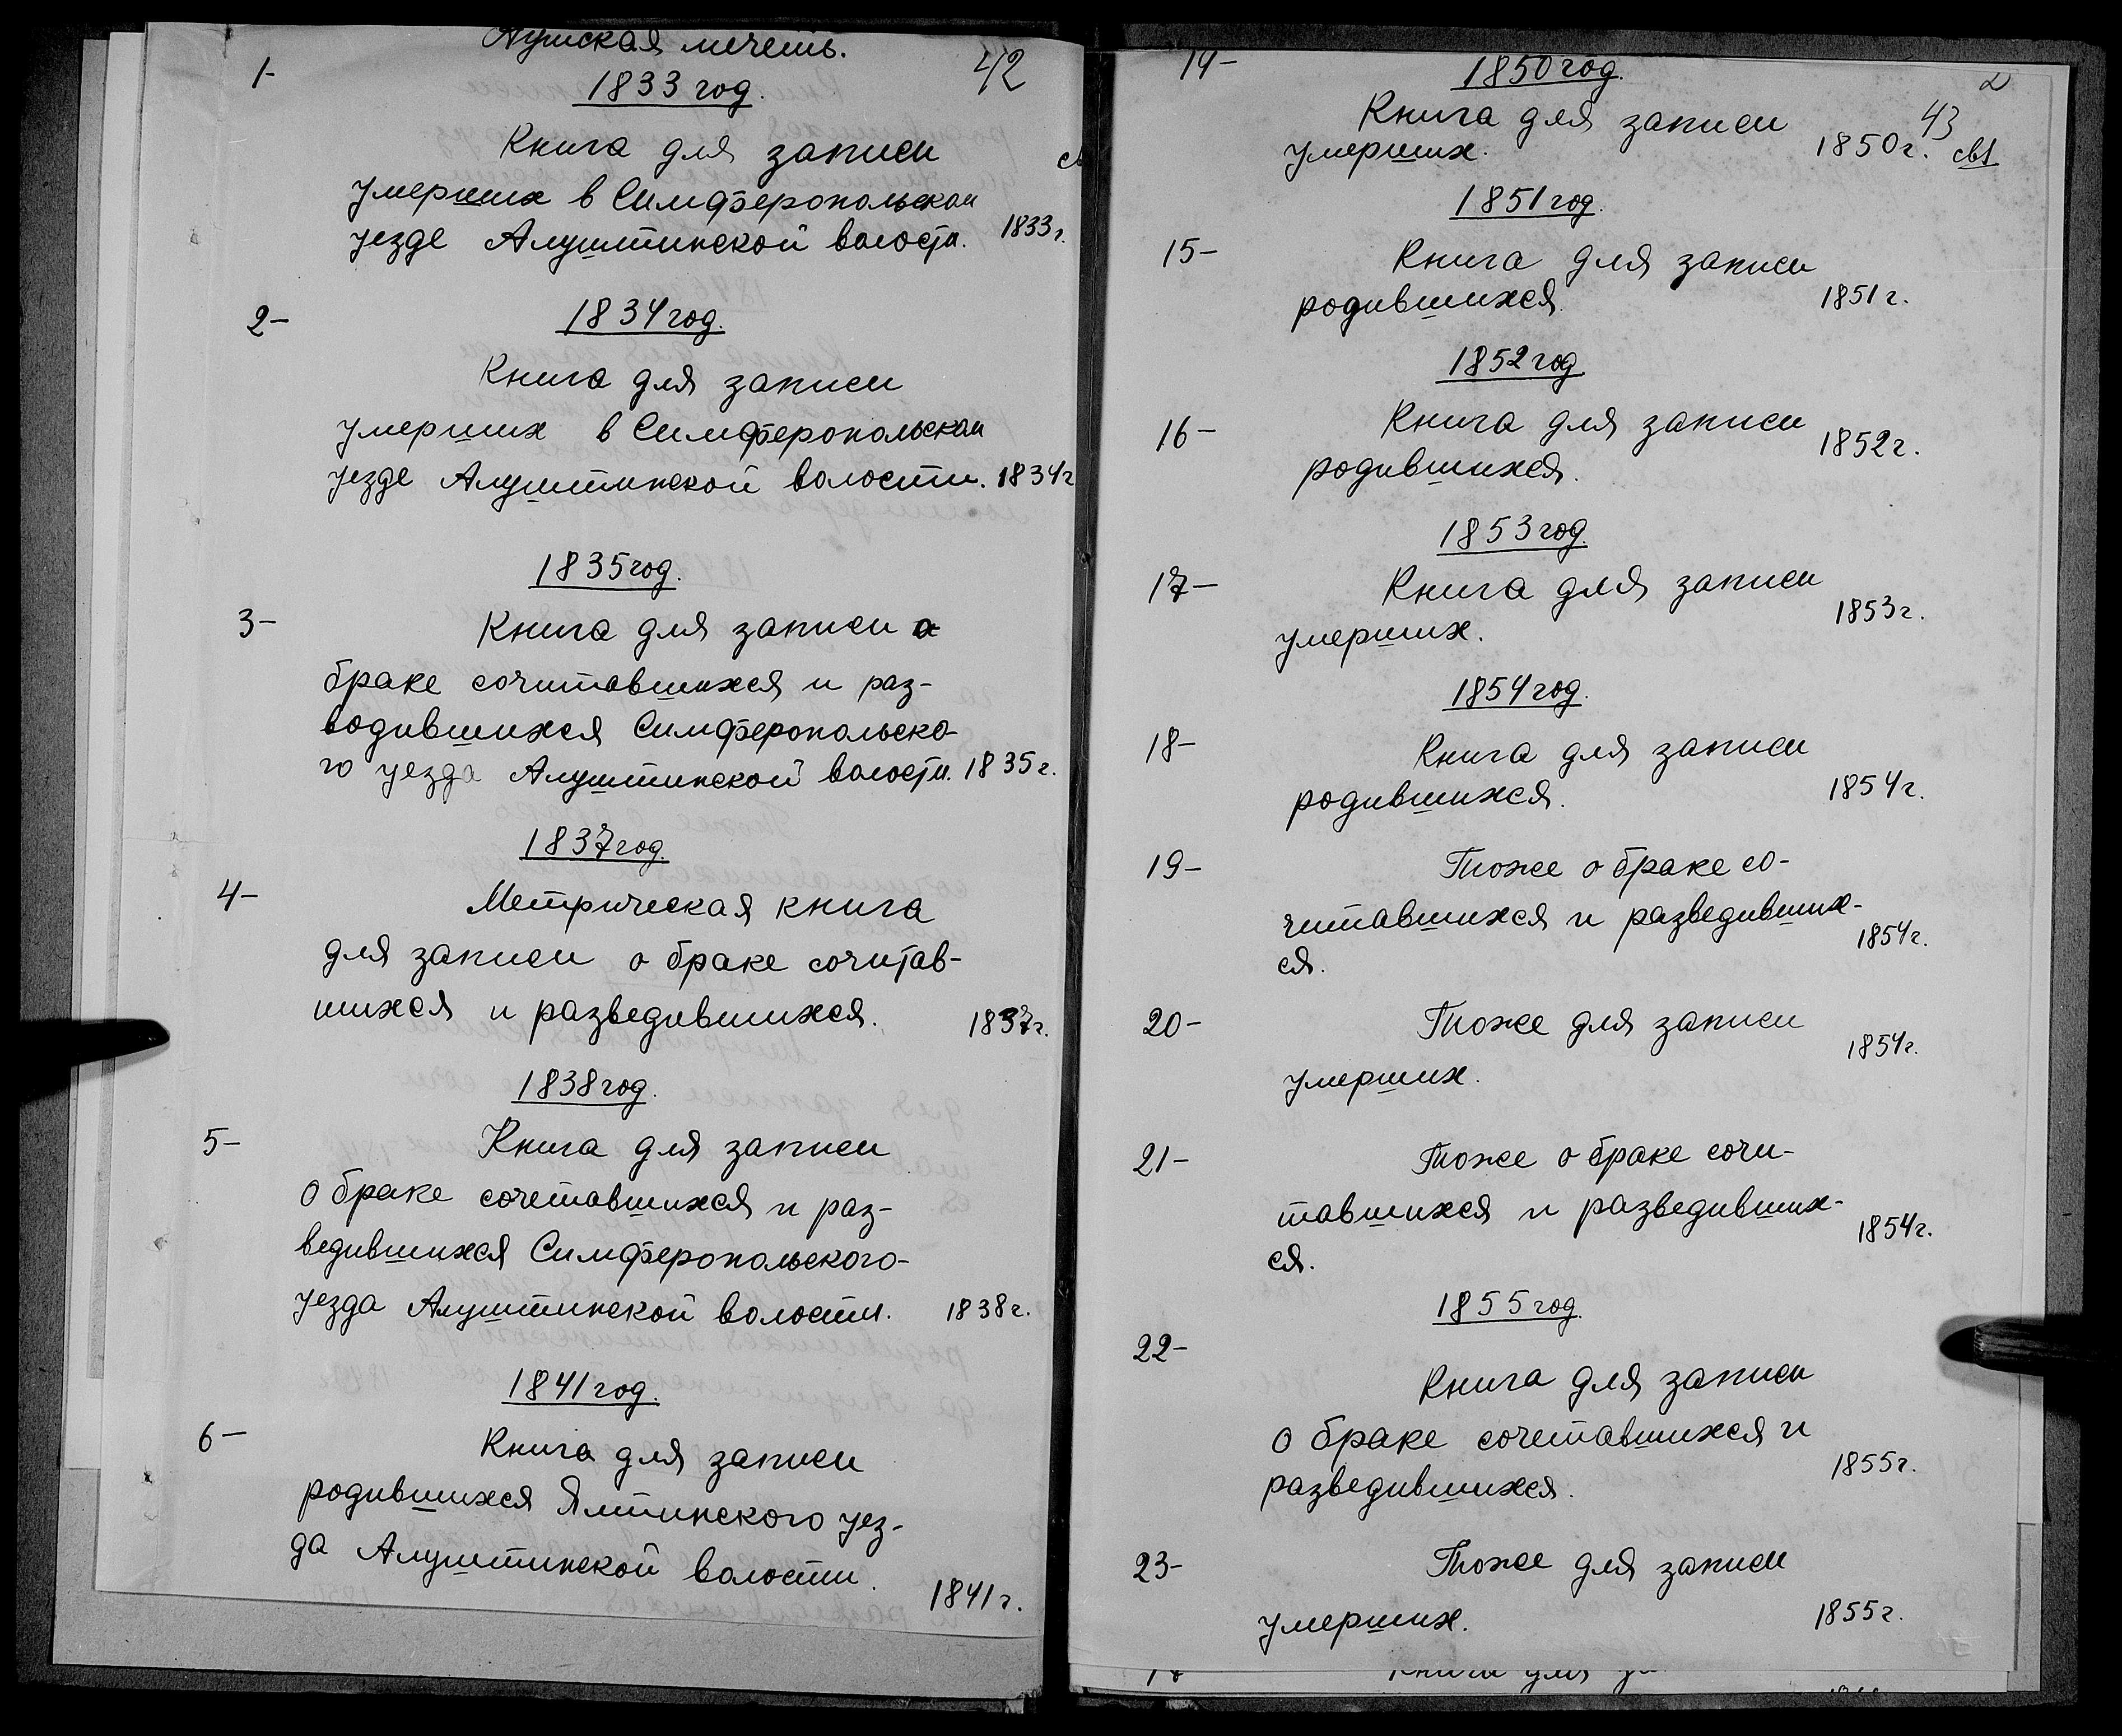 Аутская мечеть.
42
1-
1833 год.
Книга для записи
умерших в Симферопольском
уезде Алуштинской волости. 1833 г.
2-
1834 год.
Книга для записи
умерших в Симферопольском
уезде Алуштинской волости. 1834 г
1835 год.
3-
Книга для записи о
браке сочитавшихся и раз-
водившихся Симферопольско-
го уезда Алуштинской волости. 1835 г.
1837 год.
4-
Метрическая книга
для записи о браке сочитав-
шихся и разведившихся. 1837 г.
1838 год.
5-
Книга для записи
о браке сочетавшихся и раз-
ведившихся Симферопольского-
уезда Алуштинской волости. 1838 г.
1841 год.
6-
Книга для записи
родившихся Ялтинского уез-
да Алуштинской волости.
1841 г.
14-
1850 год.
2
43
Книга для записи
умерших. 1850 г. свт
1851 год.
15-
Книга для записи
родившихся. 1851 г.
1852 год.
16-
Книга для записи
родившихся. 1852 г.
1853 год.
17-
Книга для записи
умерших. 1853 г.
1854 год.
18-
Книга для записи
родившихся. 1854 г.
19-
Тоже о браке со-
читавшихся и разведивших-
ся. 1854 г.
20-
Тоже для записи
умерших. 1854 г.
21-
Тоже о браке сочи-
тавшихся и разведивших-
ся. 1854 г.
1855 год.
22-
Книга для записи
о браке сочетавшихся и
разведившихся. 1855 г.
23-
Тоже для записи
умерших. 1855 г.
17
Книга для